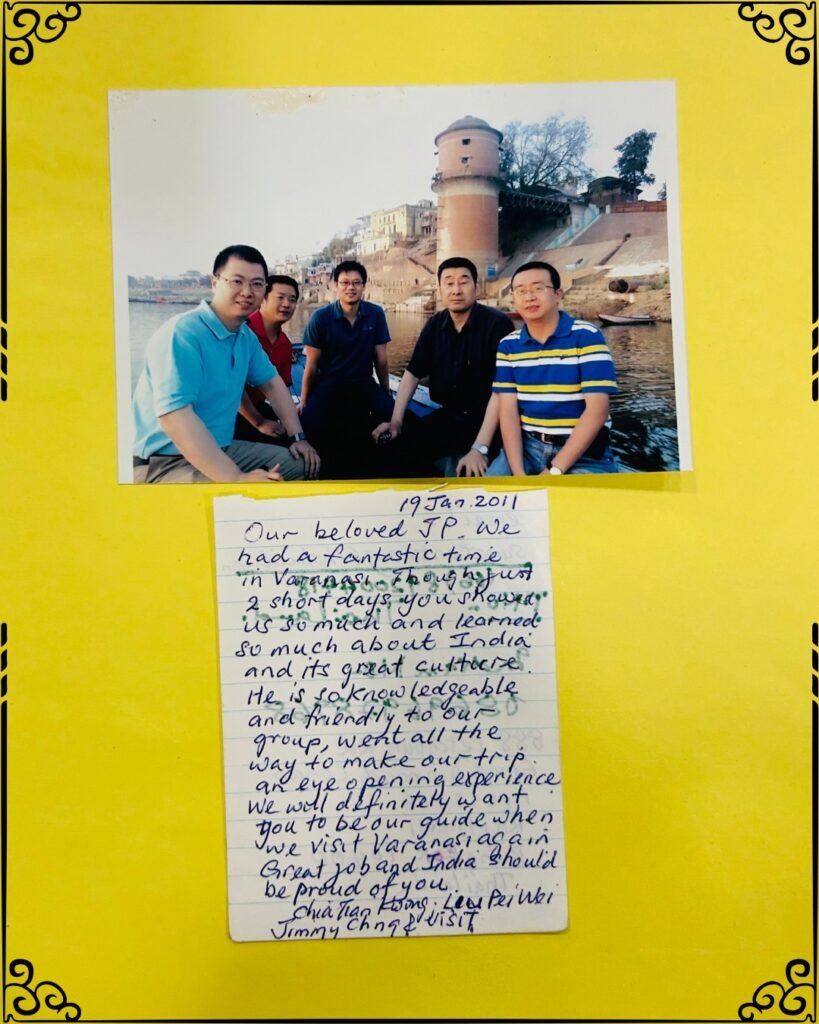 19 Jan. 2011
Our beloved JP. We
had a fantastic time
in Varanasi. Though just
2 short days, you showed
us so much and learned
so much about India
and its great culture.
He is so knowledgeable
and friendly to our
group, went all the
way to make our trip
an eye opening experience
We will definitely want
you to be our guide when
we visit Varanasi again
Great job and India should
be proud of you
Chia Tian Kwong. Lew Pei Wei
Jimmy Chng & VISIT